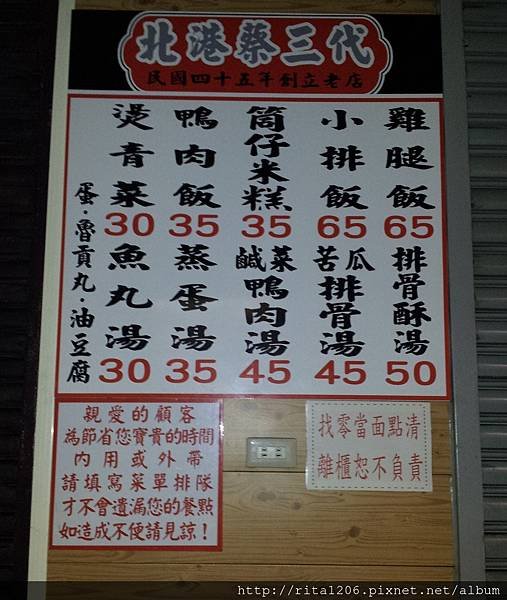 北港蔡三代
民國四十五年創立老店
雞腿飯 65
小排飯 65
筒仔米糕 35
鴨肉飯 35
燙青菜 30
排骨酥湯 50
苦瓜排骨湯 45
鹹菜鴨肉湯 45
蒸蛋湯 35
魚丸湯 30
蛋·魯貢丸·油豆腐
親愛的顧客
為節省您寶貴的時間
內用或外帶
請填寫菜單排隊
才不會遺漏您的餐點
如造成不便請見諒！
找零當面點清
離櫃恕不負責
http://rita1206.pixnet.net/album